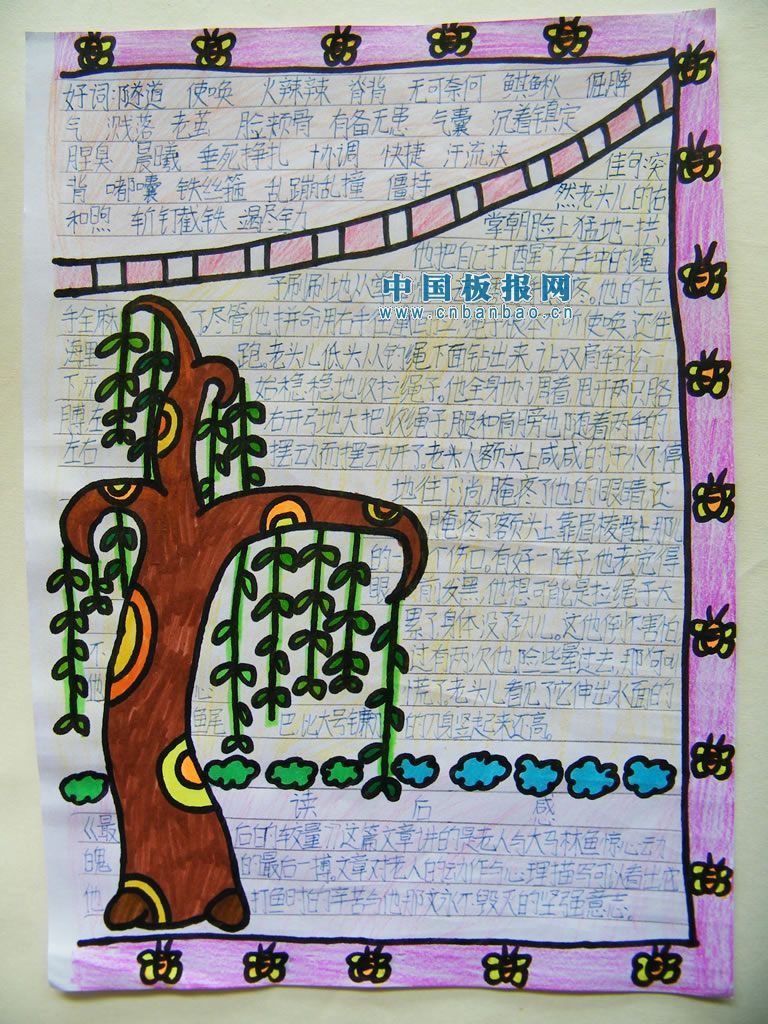 好词:隧道 使唤 火辣辣 脊背 无可奈何 鲯鳅 倔脾
气 溅落 老茧 脸颊骨 有备无患 气囊 沉着镇定
腥臭 晨曦 垂死挣扎 协调 快捷 汗流浃
背 嘟囔 铁丝箍 乱蹦乱撞 僵持
和煦 斩钉截铁 竭尽全力
佳句:深
然老头儿的右
掌朝脸上猛地一拦,
他把自己打
了右手中的绳
子刷刷地从
疼。他的左
手全麻
了。尽管他拼命用右手
使唤,还往
海里
跑。老头儿低头从钓绳下面钻出来,让双肩轻松
了,开
始稳稳地收拉绳子。他全身协调着,甩开两只胳
膊,左
右开弓地大把收绳子,腿和肩膀也随着两手的
左右
摆动而摆动开了。老头人额头上咸咸的汗水不停
地往下淌,腌疼了他的眼睛,还
腌疼了额头上靠眉棱骨上那儿
的一个伤口。有好一阵子,他老觉得
眼前发黑,他想可能是拉绳子太
累了,身体没了劲儿。这他倒不害怕
不
过有两次他险些晕过去,那何
他
慌了。老头儿看见了它伸出水面的
鱼尾巴,比大号镰
的刀身竖起来还高。
读后感
《最后的较量》这篇文章讲的是老人与大马林鱼惊心动
魄的最后一搏,文章对老人的动作与心理描写可以看出
他打鱼时怕的辛苦与他那文永不毁灭的坚强意志。
中国板报网
www.cnbanbao.cn